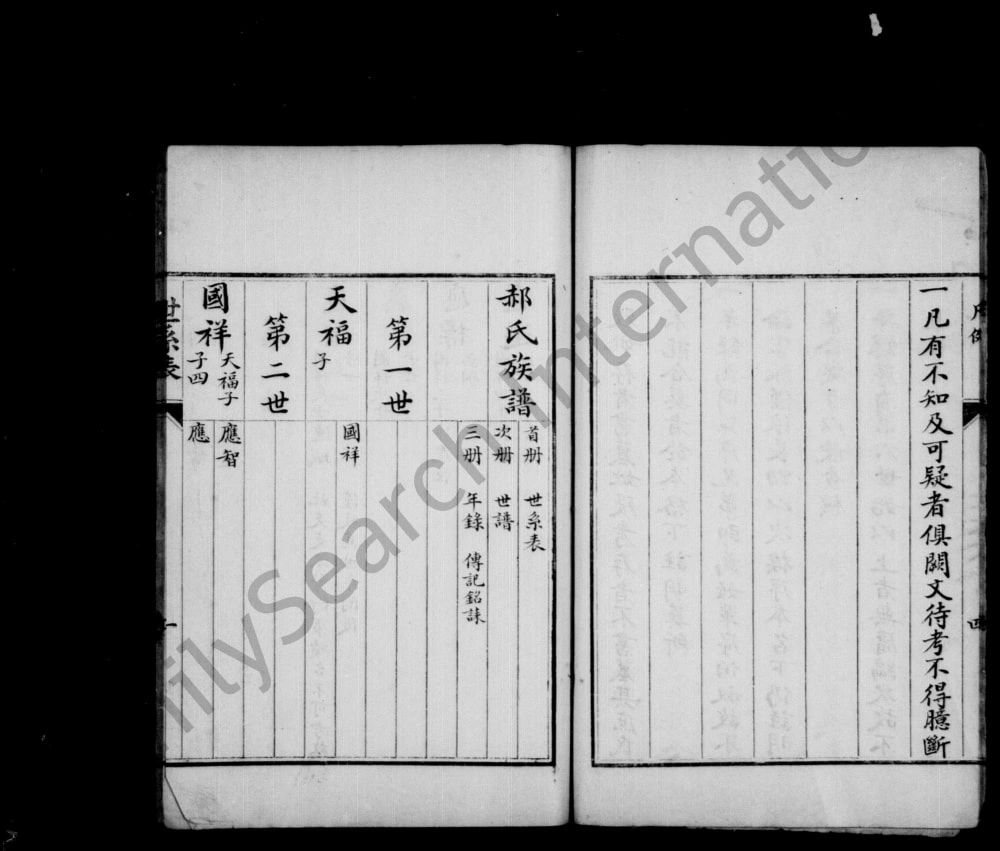 一凡有不知及可疑者俱闕文待考不得臆斷
四
郝氏族譜
首册 世系表
次册 世譜
三册 年錄 傳記銘誄
第一世
天福
子
國祥
第二世
國祥
天福子
子四
應智
應
世系表
一
ilySearch Internatio